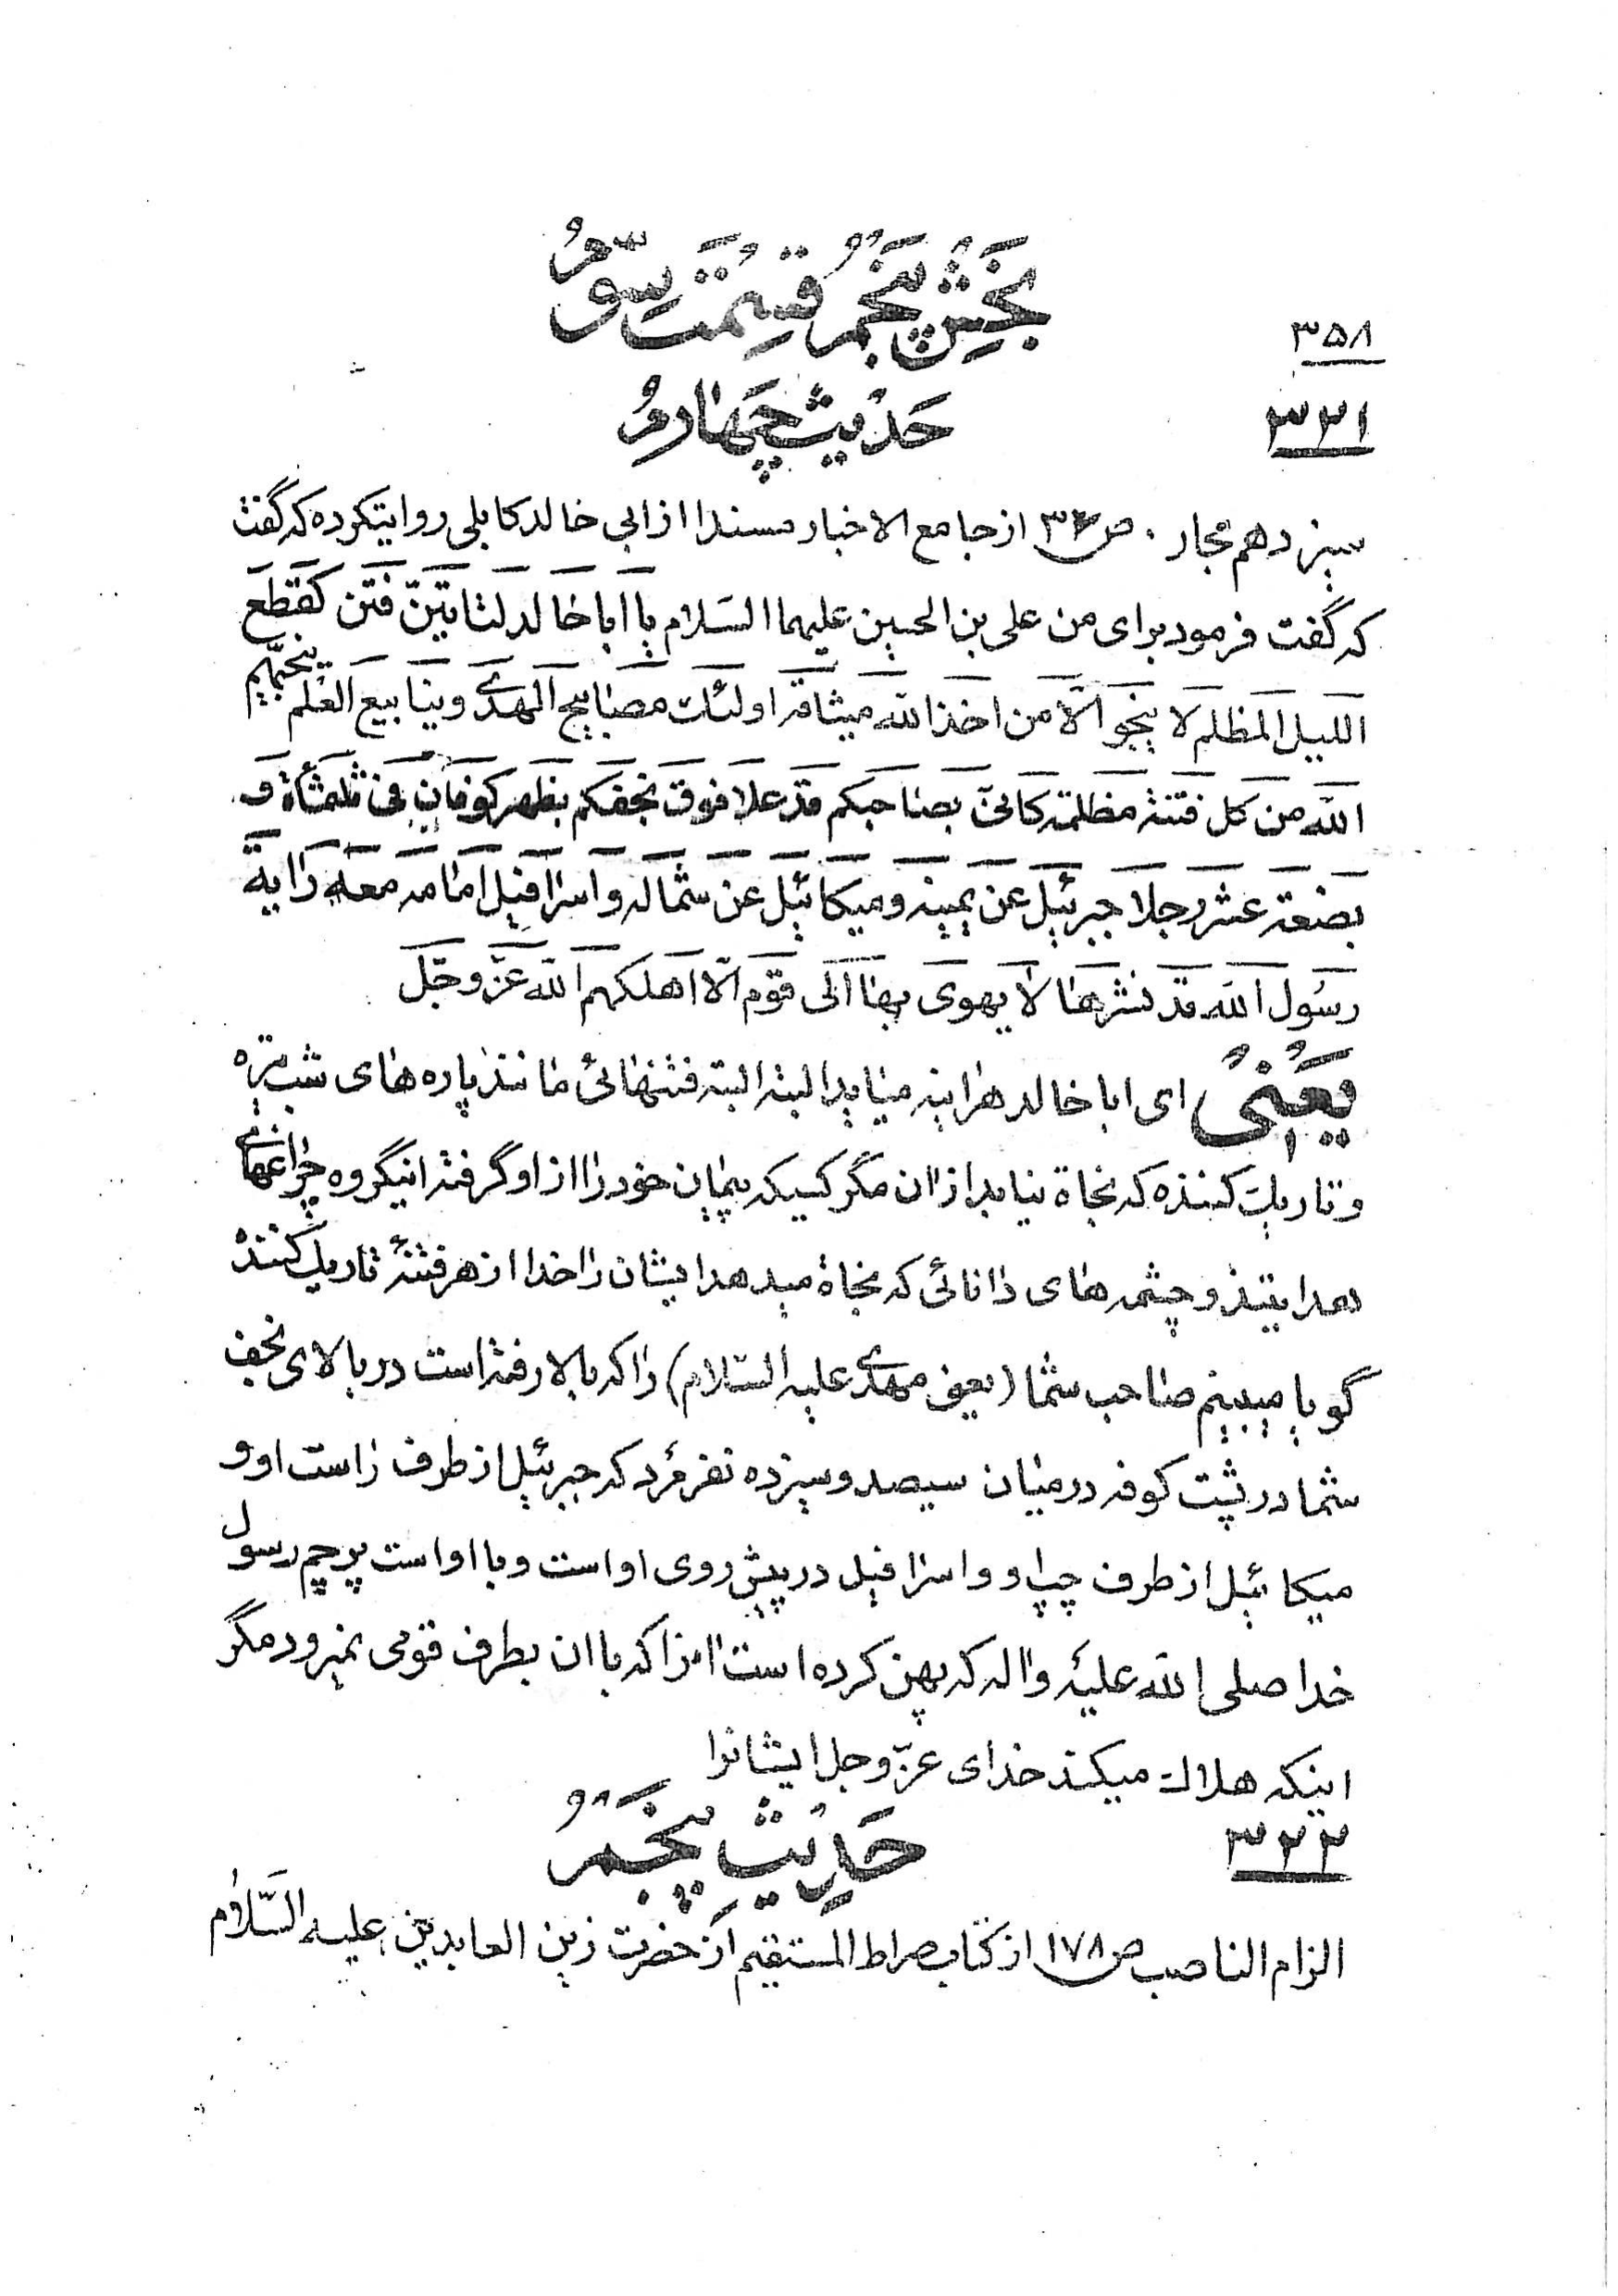 بخش پنجم قسمت سوم
۳۵۸
حدیث چهارم
۳۲۱
سیزدهم بحار ص۳۶ از جامع الاخبار مسندا از ابی خالد کابلی روایتکرده که گفت
که گفت فرمود برای من علی بن الحسین علیهما السلام یا ابا خالد لتاتینّ فتن کقطع
اللیل المظلم لا ینجو الّا من اخذ الله میثاقه اولئک مصابیح الهدی و ینابیع العلم ینجّیهم
الله من کل فتنة مظلمة کانّی بصاحبکم قد علا فوق نجفکم بظهر کوفان فی ثلثمأة و
بضعة عشر رجلا جبرئیل عن یمینه و میکائیل عن شماله و اسرافیل امامه معه رایة
رسول الله قد نشرها لا یهوی بها الی قوم الّا اهلکهم الله عزّ و جّل
یعنی ای ابا خالد هراینه میاید البته البته فتنهائی مانند پاره های شب تیره
و تاریک کننده که نجاة نیابد از ان مگر کسیکه پیمان خود را از او گرفته اینگروه چراغهای
هدایتند و چشمه های دانائی که نجاة میدهد ایشان را خدا از هر فتنهٔ تاریک کننده
گویا میبینم صاحب شما (یعنی مهدی علیه السّلام) را که بالا رفته است در بالای نجف
شما در پشت کوفه در میان سیصد و سیزده نفر مرد که جبرئیل از طرف راست او و
میکائیل از طرف چپ او و اسرافیل در پیش روی او است و با او است پرچم رسول
خدا صلی الله علیه و اله که پهن کرده است انرا که با ان بطرف قومی نمیرود مگر
اینکه هلاک میکند خدای عزّ و جل ایشانرا
حدیث پنجم
۳۲۲
الزام الناصب ص۱۷۸ از کتاب صراط المستقیم از حضرت زین العابدین علیه السّلام